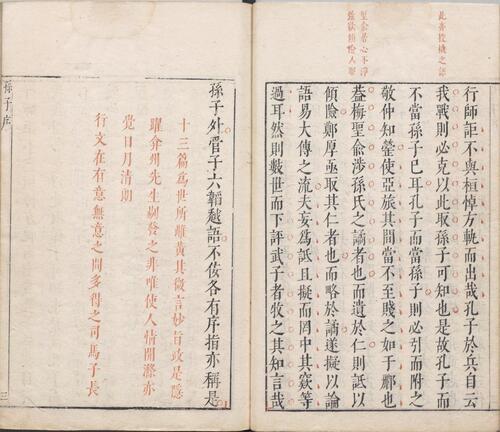 行師詎不與桓悼方軌而出哉孔子於兵自云
我戰則必克以此取孫子可知也是故孔子而
不當孫子已耳孔子而當孫子則必引而附之
敬仲知罃使亞旅其間當不至賤之如于郿也
蓋梅聖俞涉孫氏之譎者也而遺於仁則詆以
傾險鄭厚亟取其仁者也而略於譎遂擬以論
語易大傳之流夫妄為詆且擬而罔中其窾等
過耳然則數世而下評武子者牧之其知言哉
孫子外管子六韜越語不佞各有序指亦稱是
十三篇為世所雌黃其微言妙旨故是隱
躍弇州先生剏發之非唯使人情開滌亦
覺日月清朗
行文在有意無意之間多得之司馬子長
孫子序
三